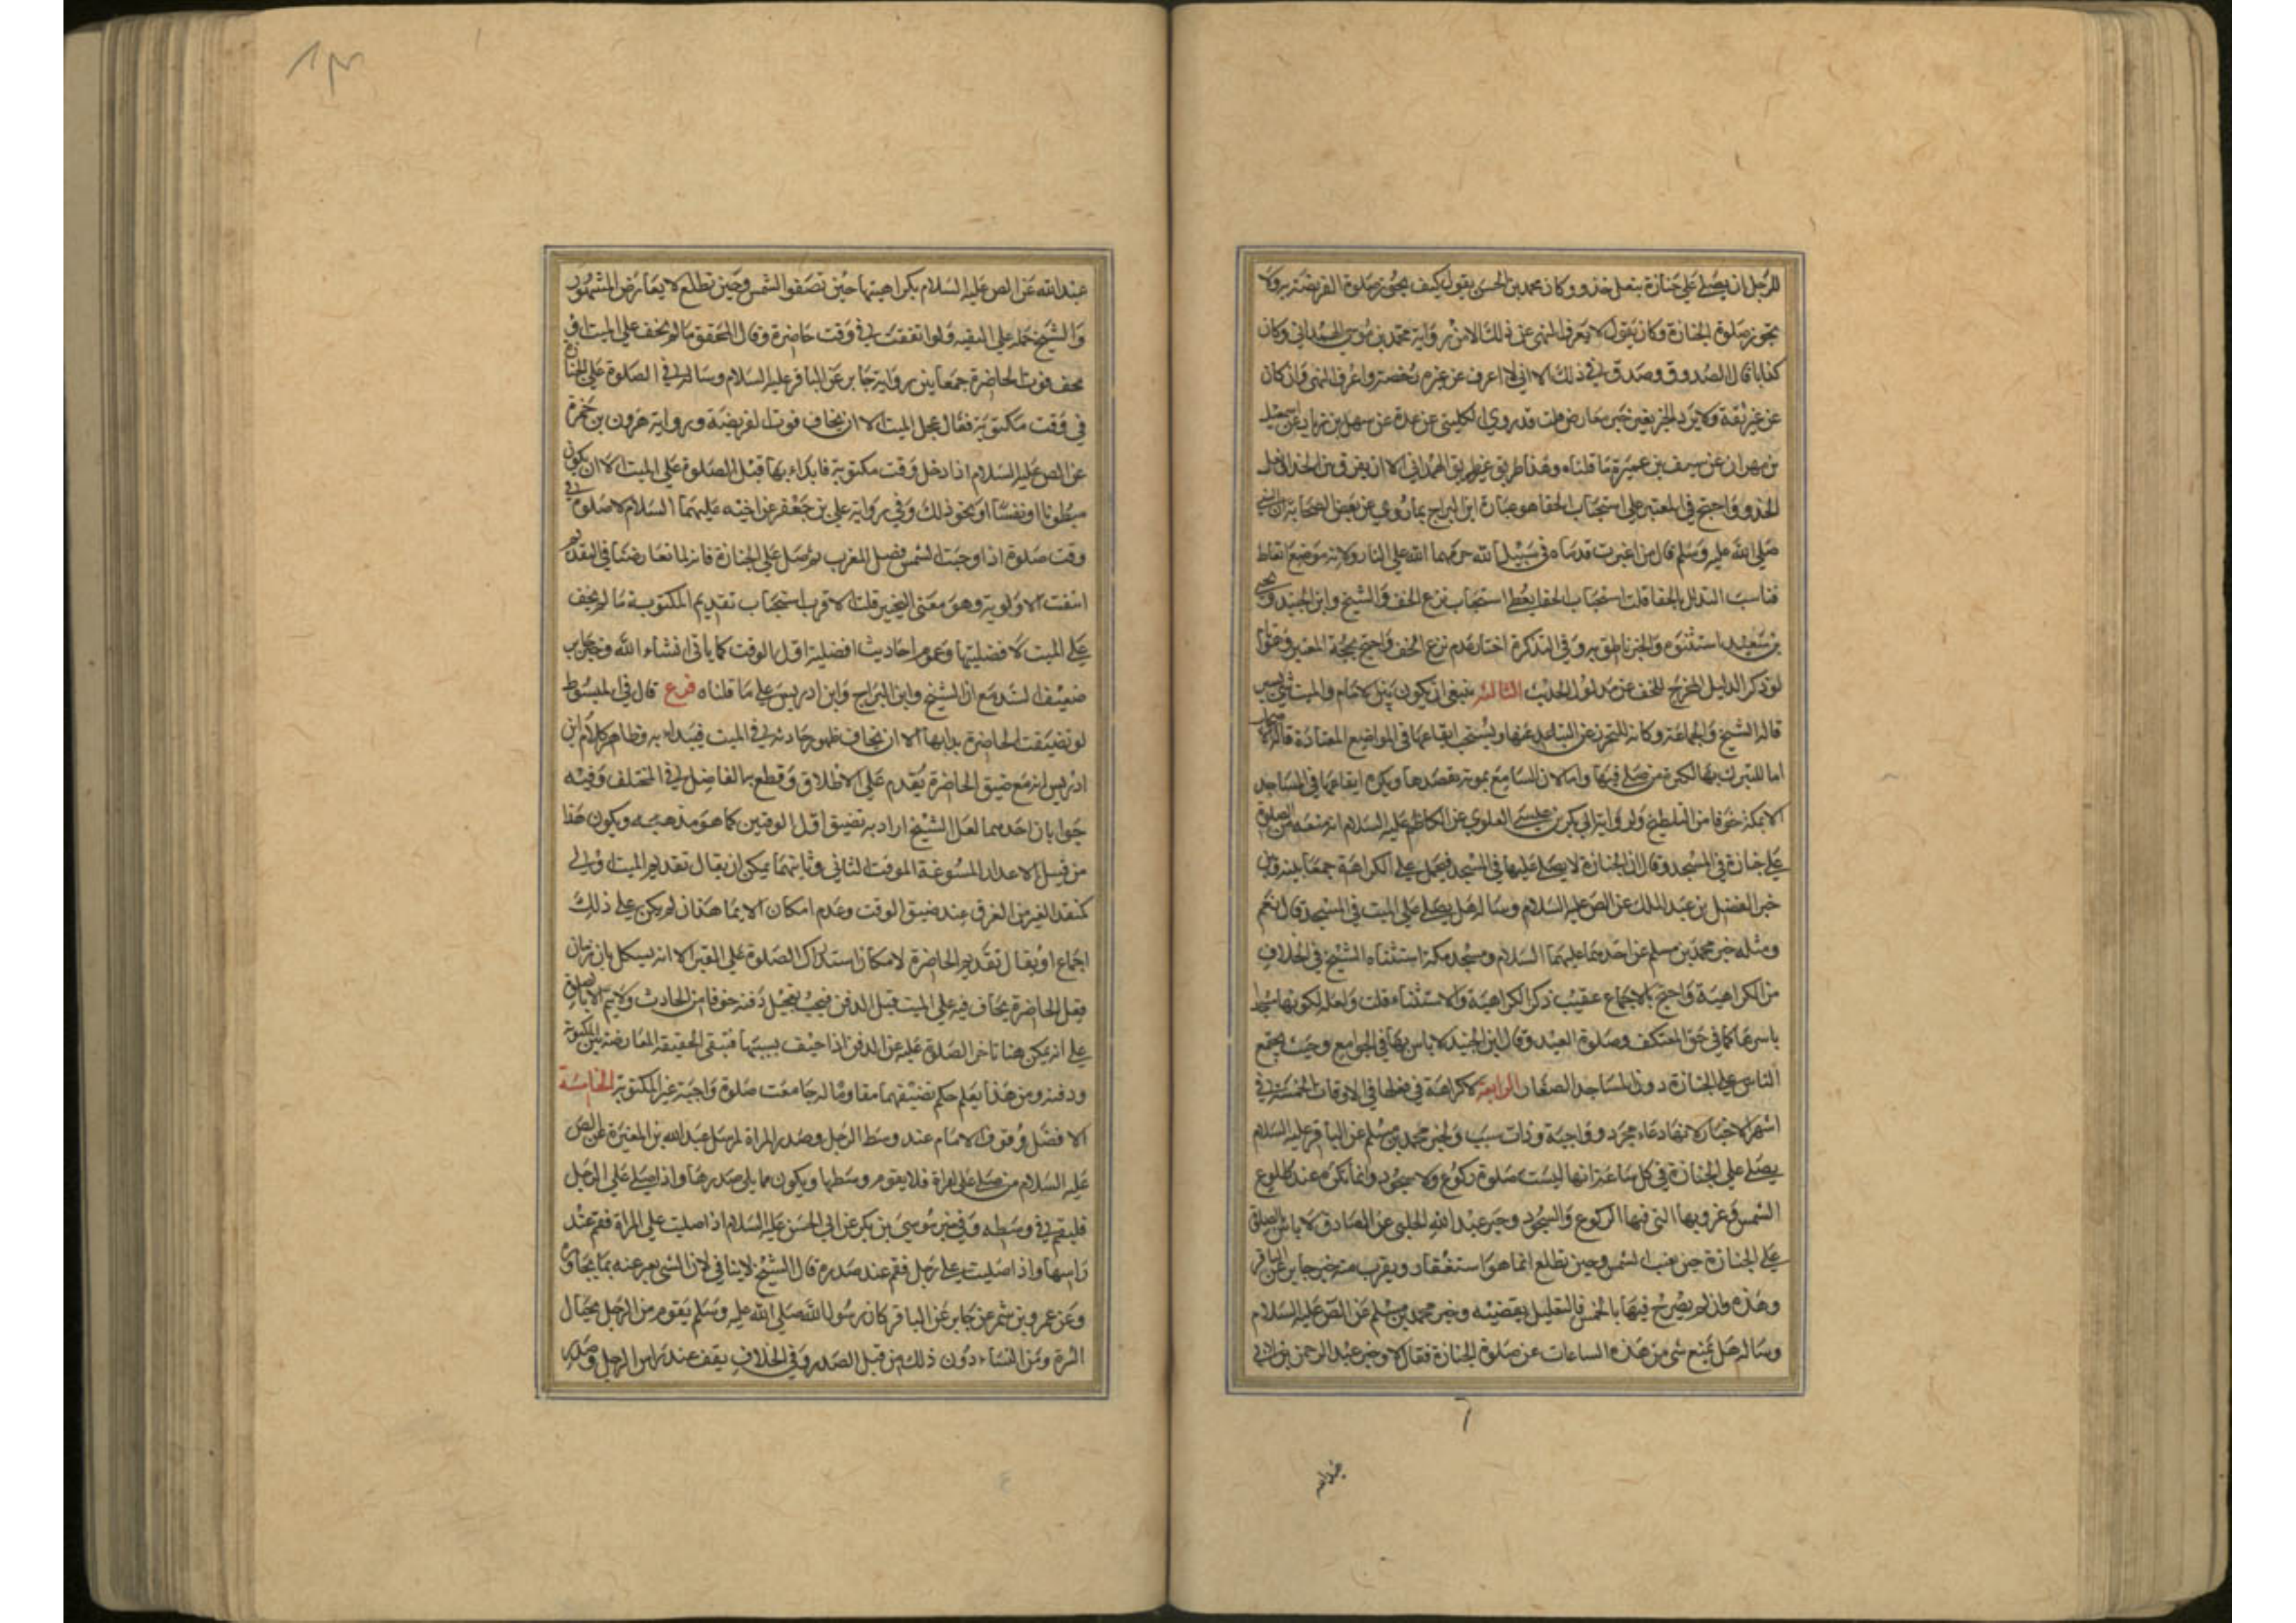 للرجل ان يصلي على جنازة بنعل حذو وكان محمد بن الحسن يقول كيف يجوز صلوة الفريضة به ولا
يجوز صلوة الجنازة وكان يقول لا يعرف النهي عن ذلك الا من رواية محمد بن موسى الهمداني وكان
كذابا قال الصدوق وصدق في ذلك الا اني لا اعرف عن غيره رخصة واعرف النهي وان كان
عن غير ثقة ولا يرد الخبر بغير خبر معارض قلت قد روى الكليني عن عدة عن سهل بن زياد عن اسمعيل
بن مهران عن سيف بن عميرة ما قلناه وهذا طريق غير طريق الهمداني الا ان يفرق بين الحذاء ونعل
الحذو واحتج في المعتبر على استحباب الحفا هو عبارة ابن البراج بما روي عن بعض الصحابة ان النبي
صلى الله عليه وسلم قال من اغبرت قدماه في سبيل الله حرمهما الله على النار ولانه موضع اتعاظ
فناسب التذلل بالحفا قلت استحباب الحفا يعطي استحباب نزع الخف والشيخ وابن الجنيد ويحيى
بن سعيد استثنوه والخبر ناطق به وفي التذكرة اختار عدم نزع الخف واحتج بحجة المعتبر وهو
لو ذكر الدليل المخرج للخف عن مدلول الحديث الثالثة ينبغي ان يكون بين الامام والميت شيء يسير
قاله الشيخ والجماعة وكانه للتحرز عن التباعد عنها ويستحب ايقاعها في المواضع المعتادة قاله
اما للتبرك بها لكثرة من صلي فيها واما لان السامع بموته يقصدها ويكره ايقاعها في المساجد
الا بمكة خوفا من التلطيخ ولرواية ابي بكر بن عيسى العلوي عن الكاظم عليه السلام انه منعه من الصلوة
على جنازة في المسجد وقال ان الجنازة لا يصلى عليها في المسجد فيحمل على الكراهة جمعا بينه وبين
خبر الفضل بن عبد الملك عن الص عليه السلام وساله هل يصلى على الميت في المسجد قال نعم
ومثله خبر محمد بن مسلم عن احدهما عليهما السلام ومسجد مكة استثناه الشيخ في الخلاف
من الكراهية واحتج بالاجماع عقيب ذكر الكراهية والاستثناء قلت ولعله لكونها مسجدا
باسرها كما في حق المعتكف وصلوة العيد وقال ابن الجنيد لا باس بها في الجوامع وحيث يجتمع
الناس على الجنازة دون المساجد الصغار الرابعة لا كراهة في فعلها في الاوقات الخمسة في
اشهر الاخبار لانها دعاء مجرد وواجبة وذات سبب ولخبر محمد بن مسلم عن الباقر عليه السلام
يصلى على الجنازة في كل ساعة انها ليست صلوة ركوع ولا سجود وانما تكره عند طلوع
الشمس وغروبها التي فيها الركوع والسجود وخبر عبيد الله الحلبي عن الصادق لا باس بالصلوة
على الجنازة حين تغيب الشمس وحين تطلع انما هو استغفار ويقرب منه خبر جابر عن الباقر
وهذه وان لم يصرح فيها بالخمس فالتعليل يقتضيه وخبر محمد بن مسلم عن الص عليه السلام
وساله هل يمنع شي من هذه الساعات عن صلوة الجنازة فقال لا وخبر عبد الرحمن بن ابي
عبد الله عن الص عليه السلام بكراهيتها حين تصفر الشمس وحين تطلع لا يعارض المشهور
والشيخ حمله على التقيه ولو اتفقت في وقت حاضرة وقال المحقق ما لم يخف على الميت او
يخف فوت الحاضرة جمعا بين رواية جابر عن الباقر عليه السلام وساله في الصلوة على الجنازة
في وقت مكتوبة فقال عجل الميت الا ان يخاف فوت الفريضة ورواية هرون بن حمزة
عن الص عليه السلام اذا دخل وقت مكتوبة فابداء بها قبل الصلوة على الميت الا ان يكون
مبطونا او نفساء او نحو ذلك وفي رواية علي بن جعفر عن اخيه عليهما السلام لا صلوة في
وقت صلوة اذا وجبت الشمس فصل المغرب ثم صل على الجنازة فانه لما تعارضتا في التقديم
انتفت الاولوية وهو معنى التخيير قلت الاقرب استحباب تقديم المكتوبة ما لم يخف
على الميت لافضليتها وعموم احاديث افضلية اول الوقت كما ياتي انشاء الله وخبر جابر
ضعيف السند مع ان الشيخ وابن البراج وابن ادريس على ما قلناه فرع قال في المبسوط
لو تضيقت الحاضرة بدابها الا ان يخاف ظهور حادثه في الميت فيبداء به وظاهر كلام ابن
ادريس انه مع ضيق الحاضرة يقدم على الاطلاق وقطع به الفاضل في المختلف وفيه
جوابان احدهما لعل الشيخ اراد به تضيق اول الوقتين كما هو مذهبه ويكون هذا
من قبيل الاعذار المسوغة للوقت الثاني وثانيهما يمكن ان يقال تقديم الميت اولى
كمنقذ الغير من الغرق عند ضيق الوقت وعدم امكان الايما هذا ان لم يكن على ذلك
اجماع او يقال تقديم الحاضرة لامكان استدراك الصلوة على القبر الا انه يشكل بان زمان
فعل الحاضرة يخاف فيه على الميت قبل الدفن فيجب تعجيل دفنه خوفا من الحادث ولا يتم الا بالصلوة
على انه يمكن هنا تاخر الصلوة عليه عن الدفن اذا خيف بسببها فتبقى الحقيقة المعارضة بين المكتوبة
ودفنه ومن هذا يعلم حكم تضيقهما معا وما له جامعت صلوة واجبة غير المكتوبة الخامسة
الافضل وقوف الامام عند وسط الرجل وصدر المراة لمرسل عبد الله بن المغيرة عن الص
عليه السلام من صلى على امراة فلا يقوم وسطها ويكون مما يلي صدرها واذا صلى على الرجل
فليقم في وسطه وفي خبر موسى بن بكر عن ابي الحسن عليه السلام اذا صليت على المراة فقم عند
راسها واذا صليت على رجل فقم عند صدره قال الشيخ لا ينافي لان الشي يعبر عنه بما يجاوره
وعن عمرو بن شمر عن جابر عن الباقر كان رسول الله صلى الله عليه وسلم يقوم من الرجل بحيال
السرة ومن النساء دون ذلك من قبل الصدر وفي الخلاف يقف عند راس الرجل وصدر